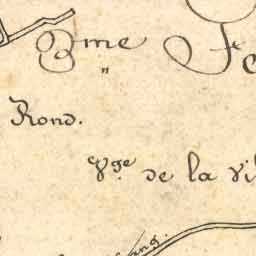 3me Fe
Rond.
Vge. de la vi